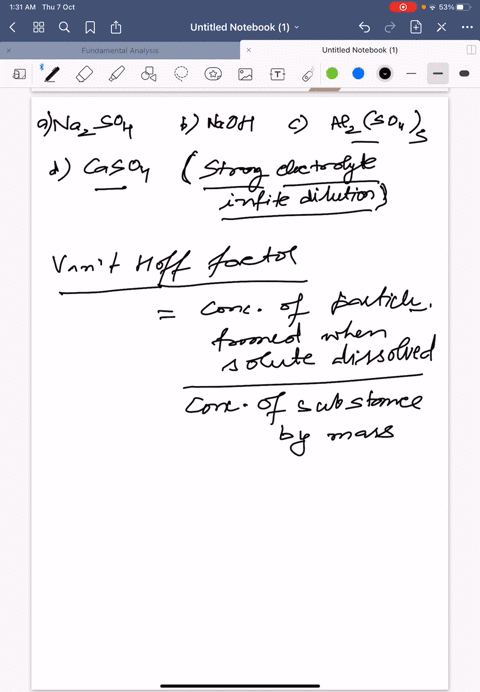 1:31 AM Thu 7 Oct 53%
Untitled Notebook (1)
Fundamental Analysis Untitled Notebook (1)
a) Na2SO4 b) NaOH c) Al2(SO4)3
d) CaSO4 (Strong electrolyte
infite dilution)
Vant Hoff factor
= Conc. of particle
formed when
solute dissolved
Conc. of substance
by mass